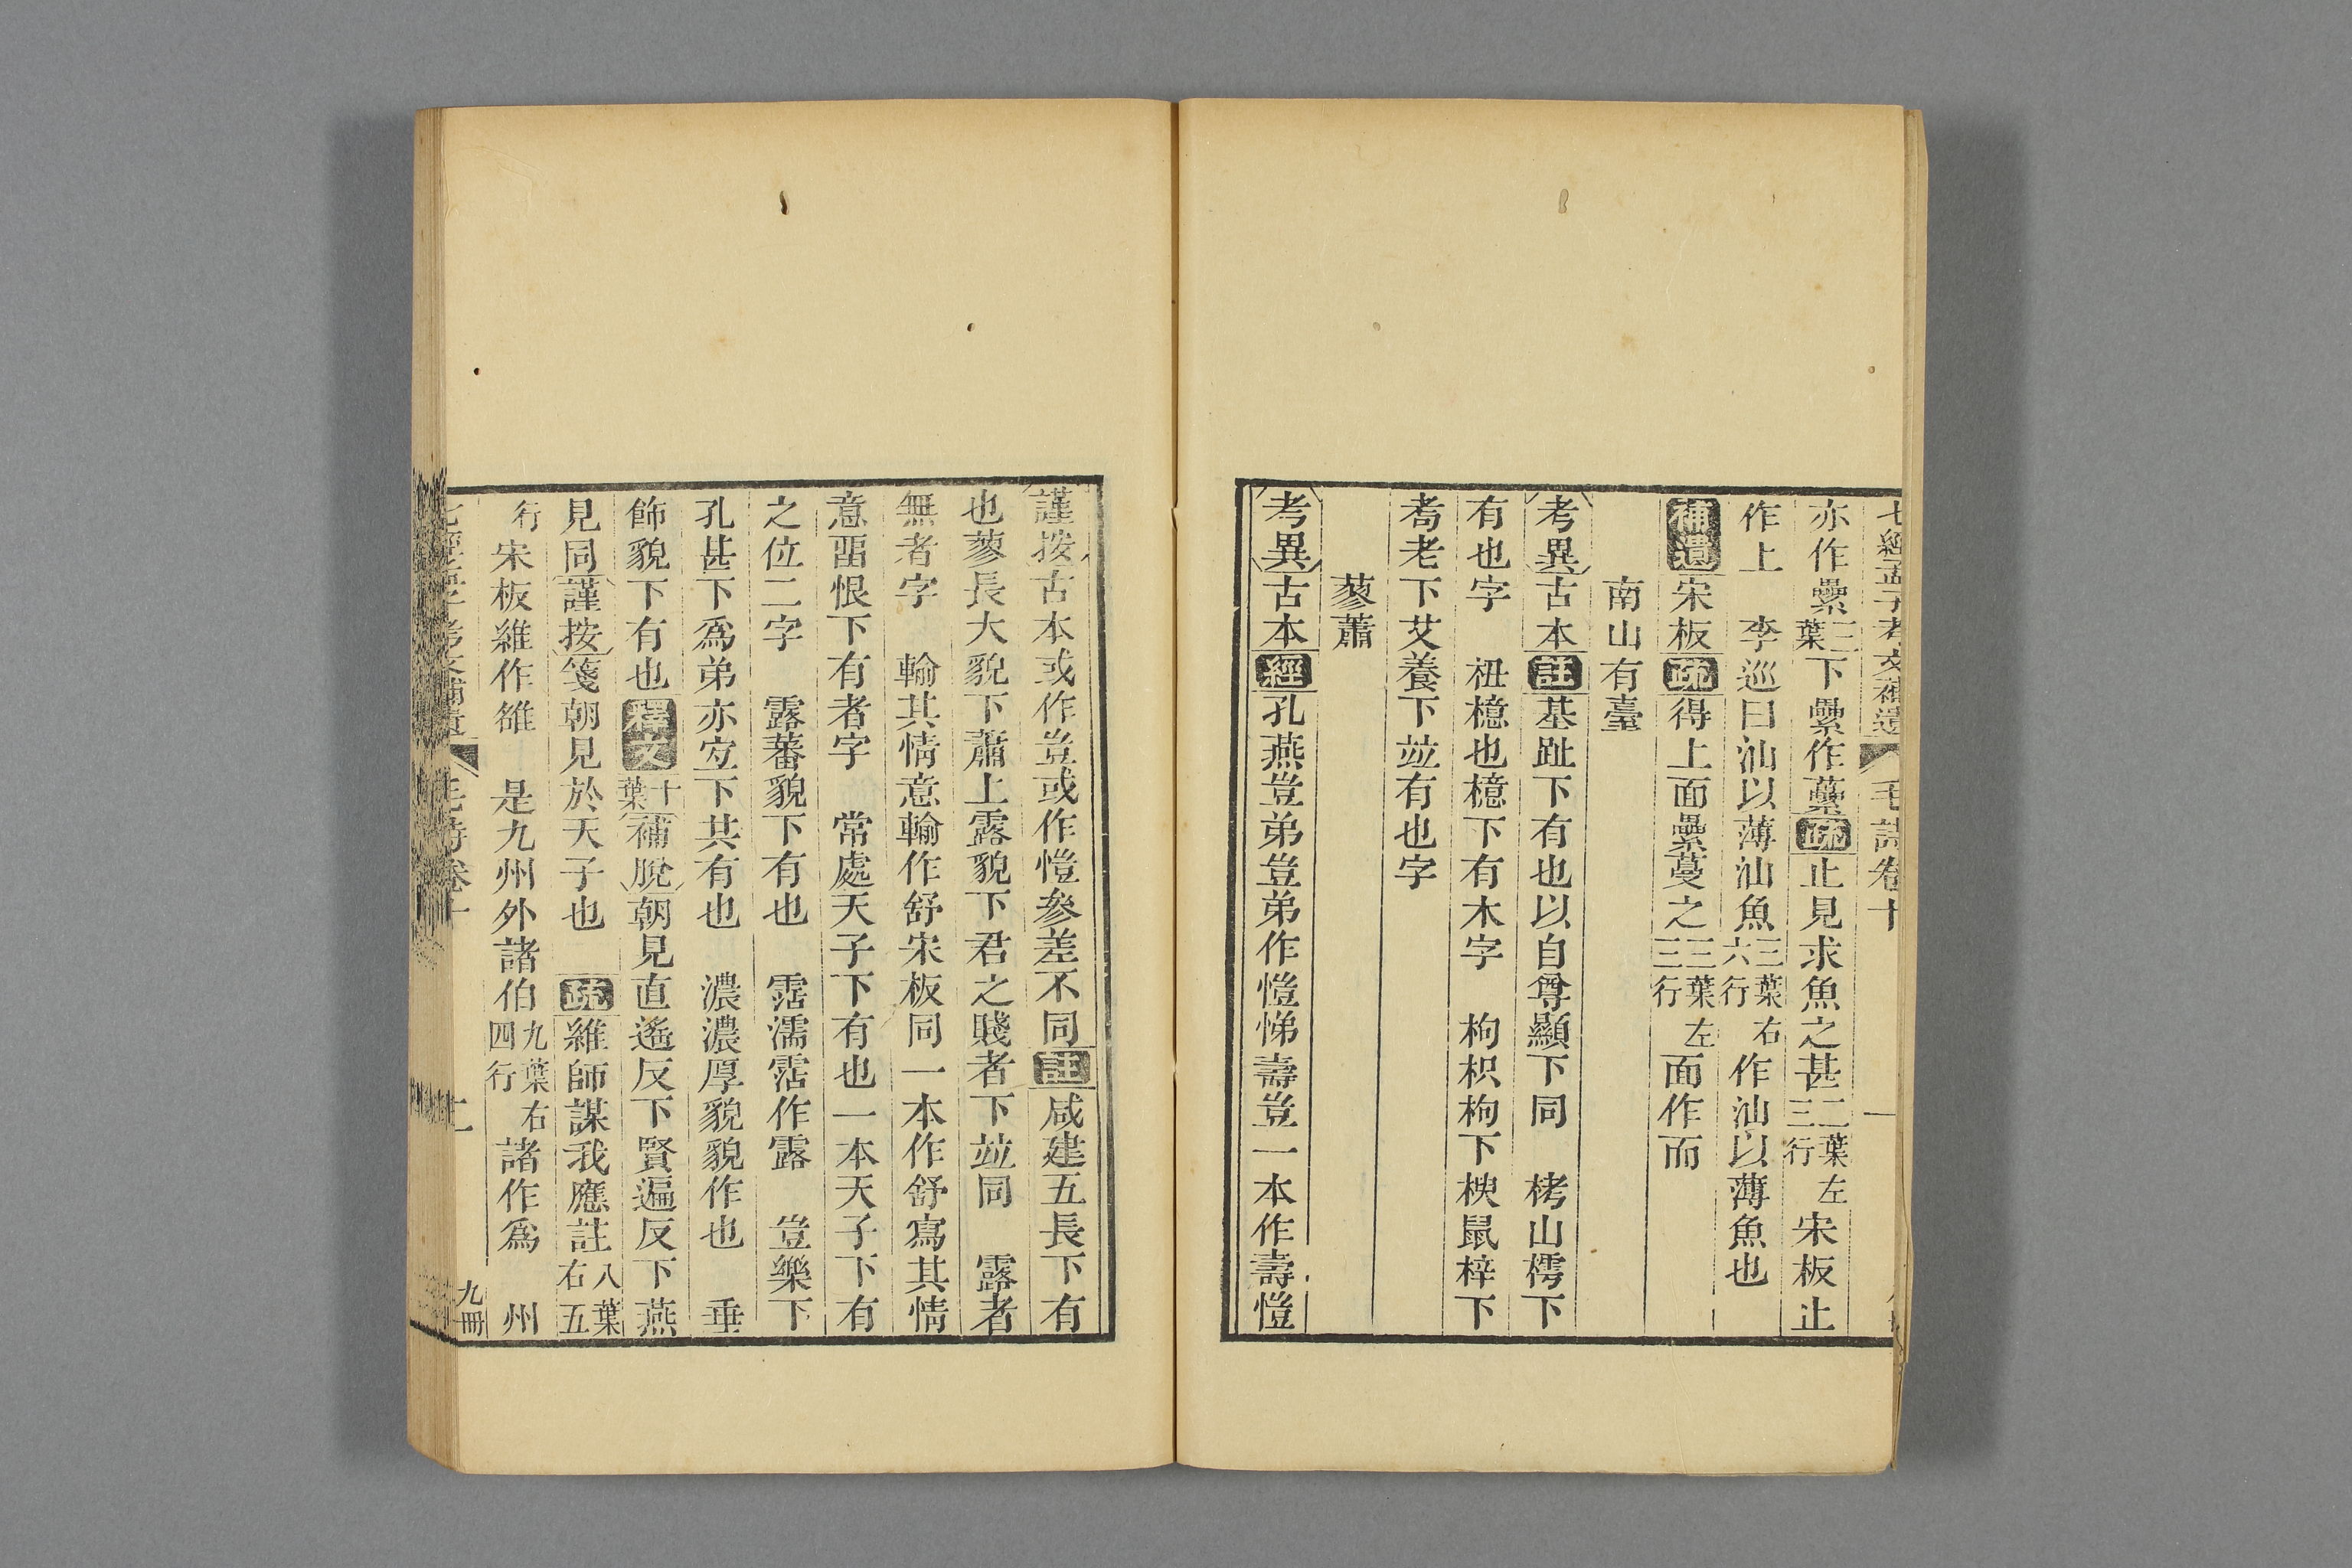 七經孟子考文補遺 毛詩卷十 一
亦作纍二葉下纍作虆疏止見求魚之甚二葉左三行宋板止
作上 李巡曰汕以薄汕魚三葉右六行作汕以薄魚也
補遺宋板疏得上面纍蔓之三葉左三行面作而
南山有臺
考異古本註基趾下有也以自尊顯下同 栲山樗下
有也字 杻檍也檍下有木字 枸枳枸下楰鼠梓下
耇老下艾養下竝有也字
蓼蕭
考異古本經孔燕豈弟豈弟作愷悌壽豈一本作壽愷
謹按古本或作豈或作愷參差不同註咸建五長下有
也蓼長大貌下蕭上露貌下君之賤者下竝同 露者
無者字 輸其情意輸作舒宋板同一本作舒寫其情
意畱恨下有者字 常處天子下有也一本天子下有
之位二字 露蕃貌下有也 霑濡霑作露 豈樂下
孔甚下爲弟亦宜下共有也 濃濃厚貌貌作也 垂
飾貌下有也釋文十葉補脫朝見直遙反下賢遍反下燕
見同謹按箋朝見於天子也 疏維師謀我應註八葉右五
行宋板維作雒 是九州外諸伯九葉右四行諸作爲 州
七經孟子考文補遺 毛詩卷十 二 九冊